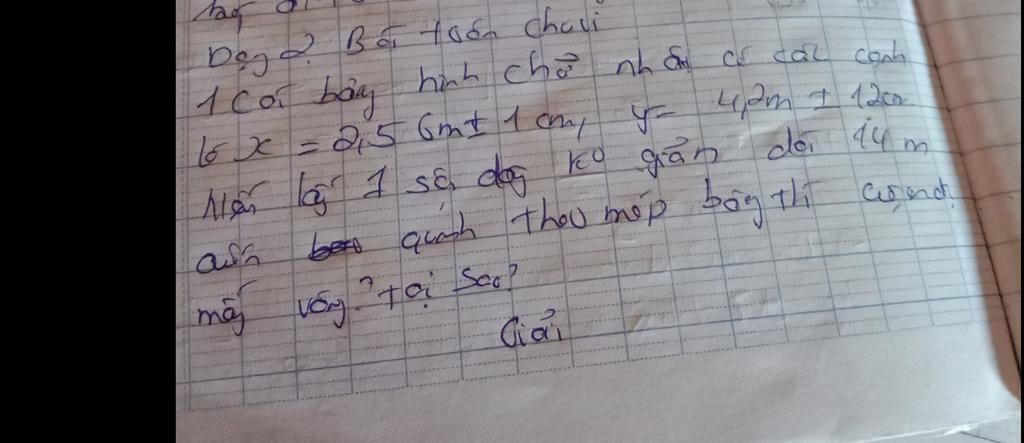 Dạng 2. Bài toán chuvi
1 Cái bảng hình chở nhật có các cạnh
là x = 2,56m ± 1cm, y = 4,2m ± 12cm
Nếu lấy 1 sợi dây ko giản dài 14m
quấn quanh theo mép bảng thì
mấy vòng? tại sao?
Giải